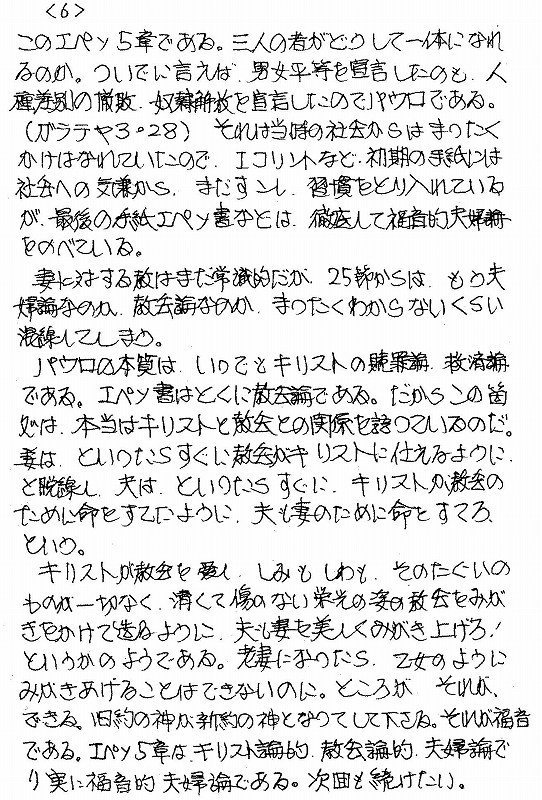 <6>
このエペソ5章である。三人の者がどうして一体になれ
るのか。ついでに言えば、男女平等を宣言したのも、人
種差別の撤敗、奴隷解放を宣言したのでパウロである。
(ガラテヤ3・28) それは当時の社会からはまったく
かけはなれていたので、Iコリントなど、初期の手紙には
社会への気兼から、まだすこし、習慣をとり入れている
が、最後の手紙エペソ書などは、徹底して福音的夫婦論
をのべている。
妻に対する教はまだ常識的だが、25節からは、もう夫
婦論なのか、教会論なのか、まったくわからないくらい
混線してしまう。
パウロの本質は、いつでもキリストの贖罪論、救済論
である。エペソ書はとくに教会論である。だからこの箇
処は、本当はキリストと教会との関係を語っているのだ。
妻は、といったらすぐに教会がキリストに仕えるように、
と脱線し、夫は、といったらすぐに、キリストが教会の
ために命をすてたように、夫も妻のために命をすてろ、
という。
キリストが教会を愛し、しみも しわも、そのたぐいの
ものが一切なく、清くて傷のない栄光の姿の教会をみが
きをかけて造るように、夫も妻を美しくみがき上げろ!
というかのようである。老妻になったら、乙女のように
みがきあげることはできないのに。ところが それが、
できる。旧約の神が新約の神となりてして下さる。それが福音
である。エペソ5章は、キリスト論的、教会論的、夫婦論で
り実に福音的 夫婦論である。次回も続けたい。